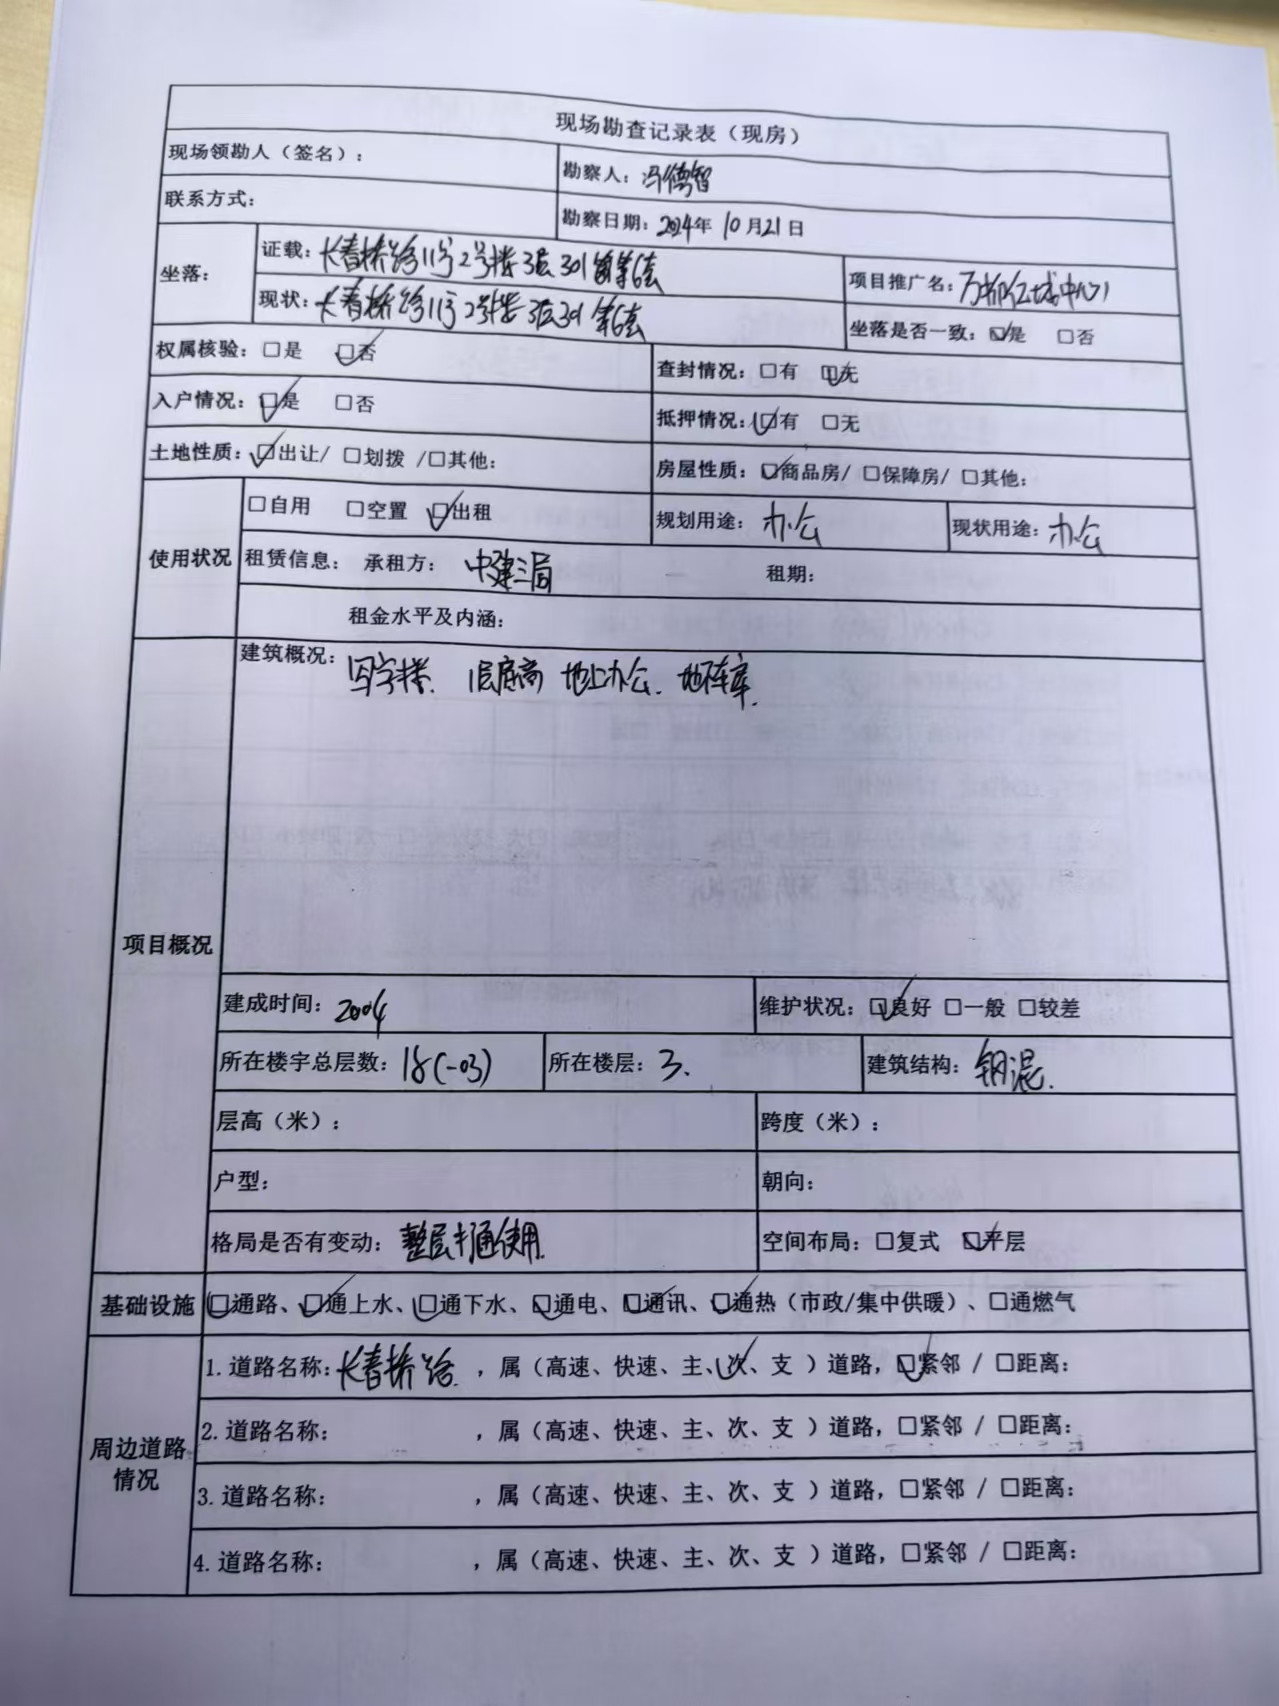 现场勘查记录表（现房）
现场领勘人（签名）：
勘察人：冯德智
联系方式：
勘察日期：2024年 10月21日
坐落：
证载：长春桥路11号2号楼3层301等6套
项目推广名：万柳亿城中心
现状：长春桥路11号2号楼3层301等6套
坐落是否一致：☑是 □否
权属核验：□是 ☑否
查封情况：□有 ☑无
入户情况：☑是 □否
抵押情况：☑有 □无
土地性质：☑出让/ □划拨 /□其他：
房屋性质：☑商品房/ □保障房/ □其他：
使用状况
□自用 □空置 ☑出租
规划用途：办公
现状用途：办公
租赁信息： 承租方： 中建三局 租期：
租金水平及内涵：
项目概况
建筑概况：写字楼、1层底商 地上办公、地下车库.
建成时间：2004
维护状况：☑良好 □一般 □较差
所在楼宇总层数：18(-03)
所在楼层：3.
建筑结构：钢混.
层高（米）：
跨度（米）：
户型：
朝向：
格局是否有变动：整层打通使用.
空间布局：□复式 ☑平层
基础设施
☑通路、☑通上水、☑通下水、☑通电、☑通讯、☑通热（市政/集中供暖）、□通燃气
周边道路情况
1. 道路名称：长春桥路 ，属（高速、快速、主、次✓、支 ）道路，☑紧邻 / □距离：
2. 道路名称： ，属（高速、快速、主、次、支 ）道路，□紧邻 / □距离：
3. 道路名称： ，属（高速、快速、主、次、支 ）道路，□紧邻 / □距离：
4. 道路名称： ，属（高速、快速、主、次、支 ）道路，□紧邻 / □距离：